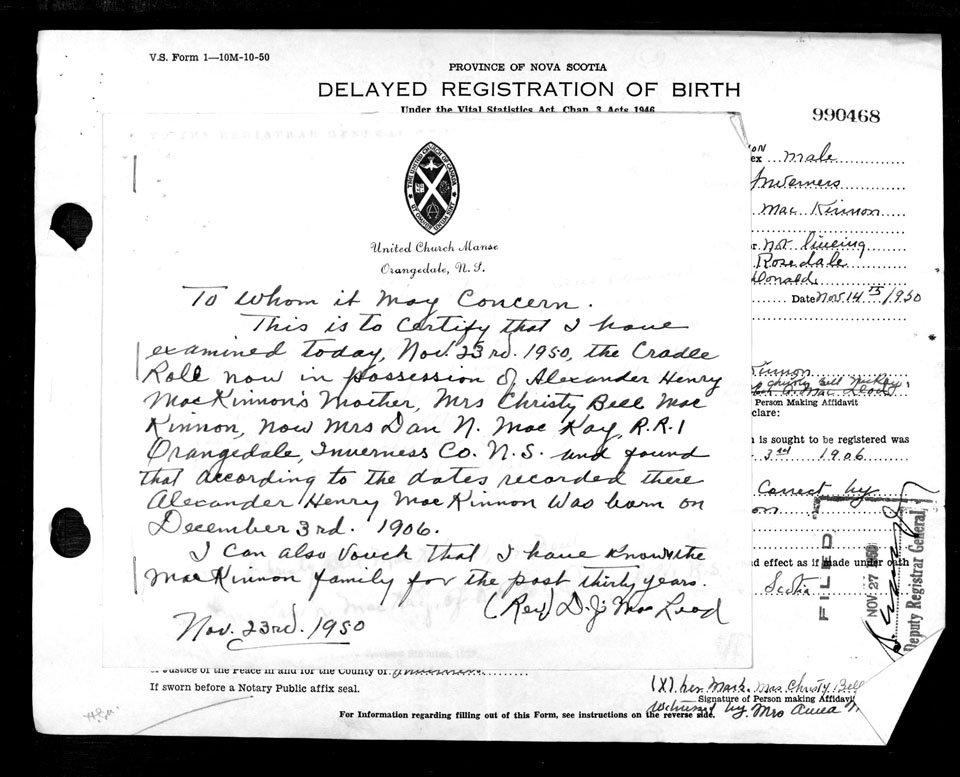 V.S. Form 1—10M-10-50
PROVINCE OF NOVA SCOTIA
DELAYED REGISTRATION OF BIRTH
Under the Vital Statistics Act, Chap. 3 Acts 1946
990468
TO THE REGISTRAR GENERAL
THE UNITED CHURCH OF CANADA
United Church Manse
Orangedale, N.S.
To whom it may Concern.
This is to certify that I have
examined today, Nov. 23rd. 1950, the Cradle
Roll now in possession of Alexander Henry
MacKinnon's Mother, Mrs Christy Bell Mac
Kinnon, now Mrs Dan N. Mac Kay, R.R.1
Orangedale, Inverness Co. N.S. and found
that according to the dates recorded there
Alexander Henry MacKinnon was born on
December 3rd. 1906.
I can also vouch that I have known the
MacKinnon family for the past thirty years.
(Rev) D.J. MacLeod
Nov. 23rd. 1950
ex male
Inverness
Mac Kinnon
Not liveing
Rosedale
Donald
Date Nov. 14 th /1950
Kinnon
Person Making Affidavit
clare:
is sought to be registered was
3rd 1906
Correct by
on
d effect as if made under oath
Scotia
FILED
NOV 27 1950
Deputy Registrar General,
Justice of the Peace in and for the County of Inverness
If sworn before a Notary Public affix seal.
(X) her Mark. Mrs Christy Bell
Signature of Person making Affidavit
Witnessed by Mrs
For Information regarding filling out of this Form, see instructions on the reverse side.